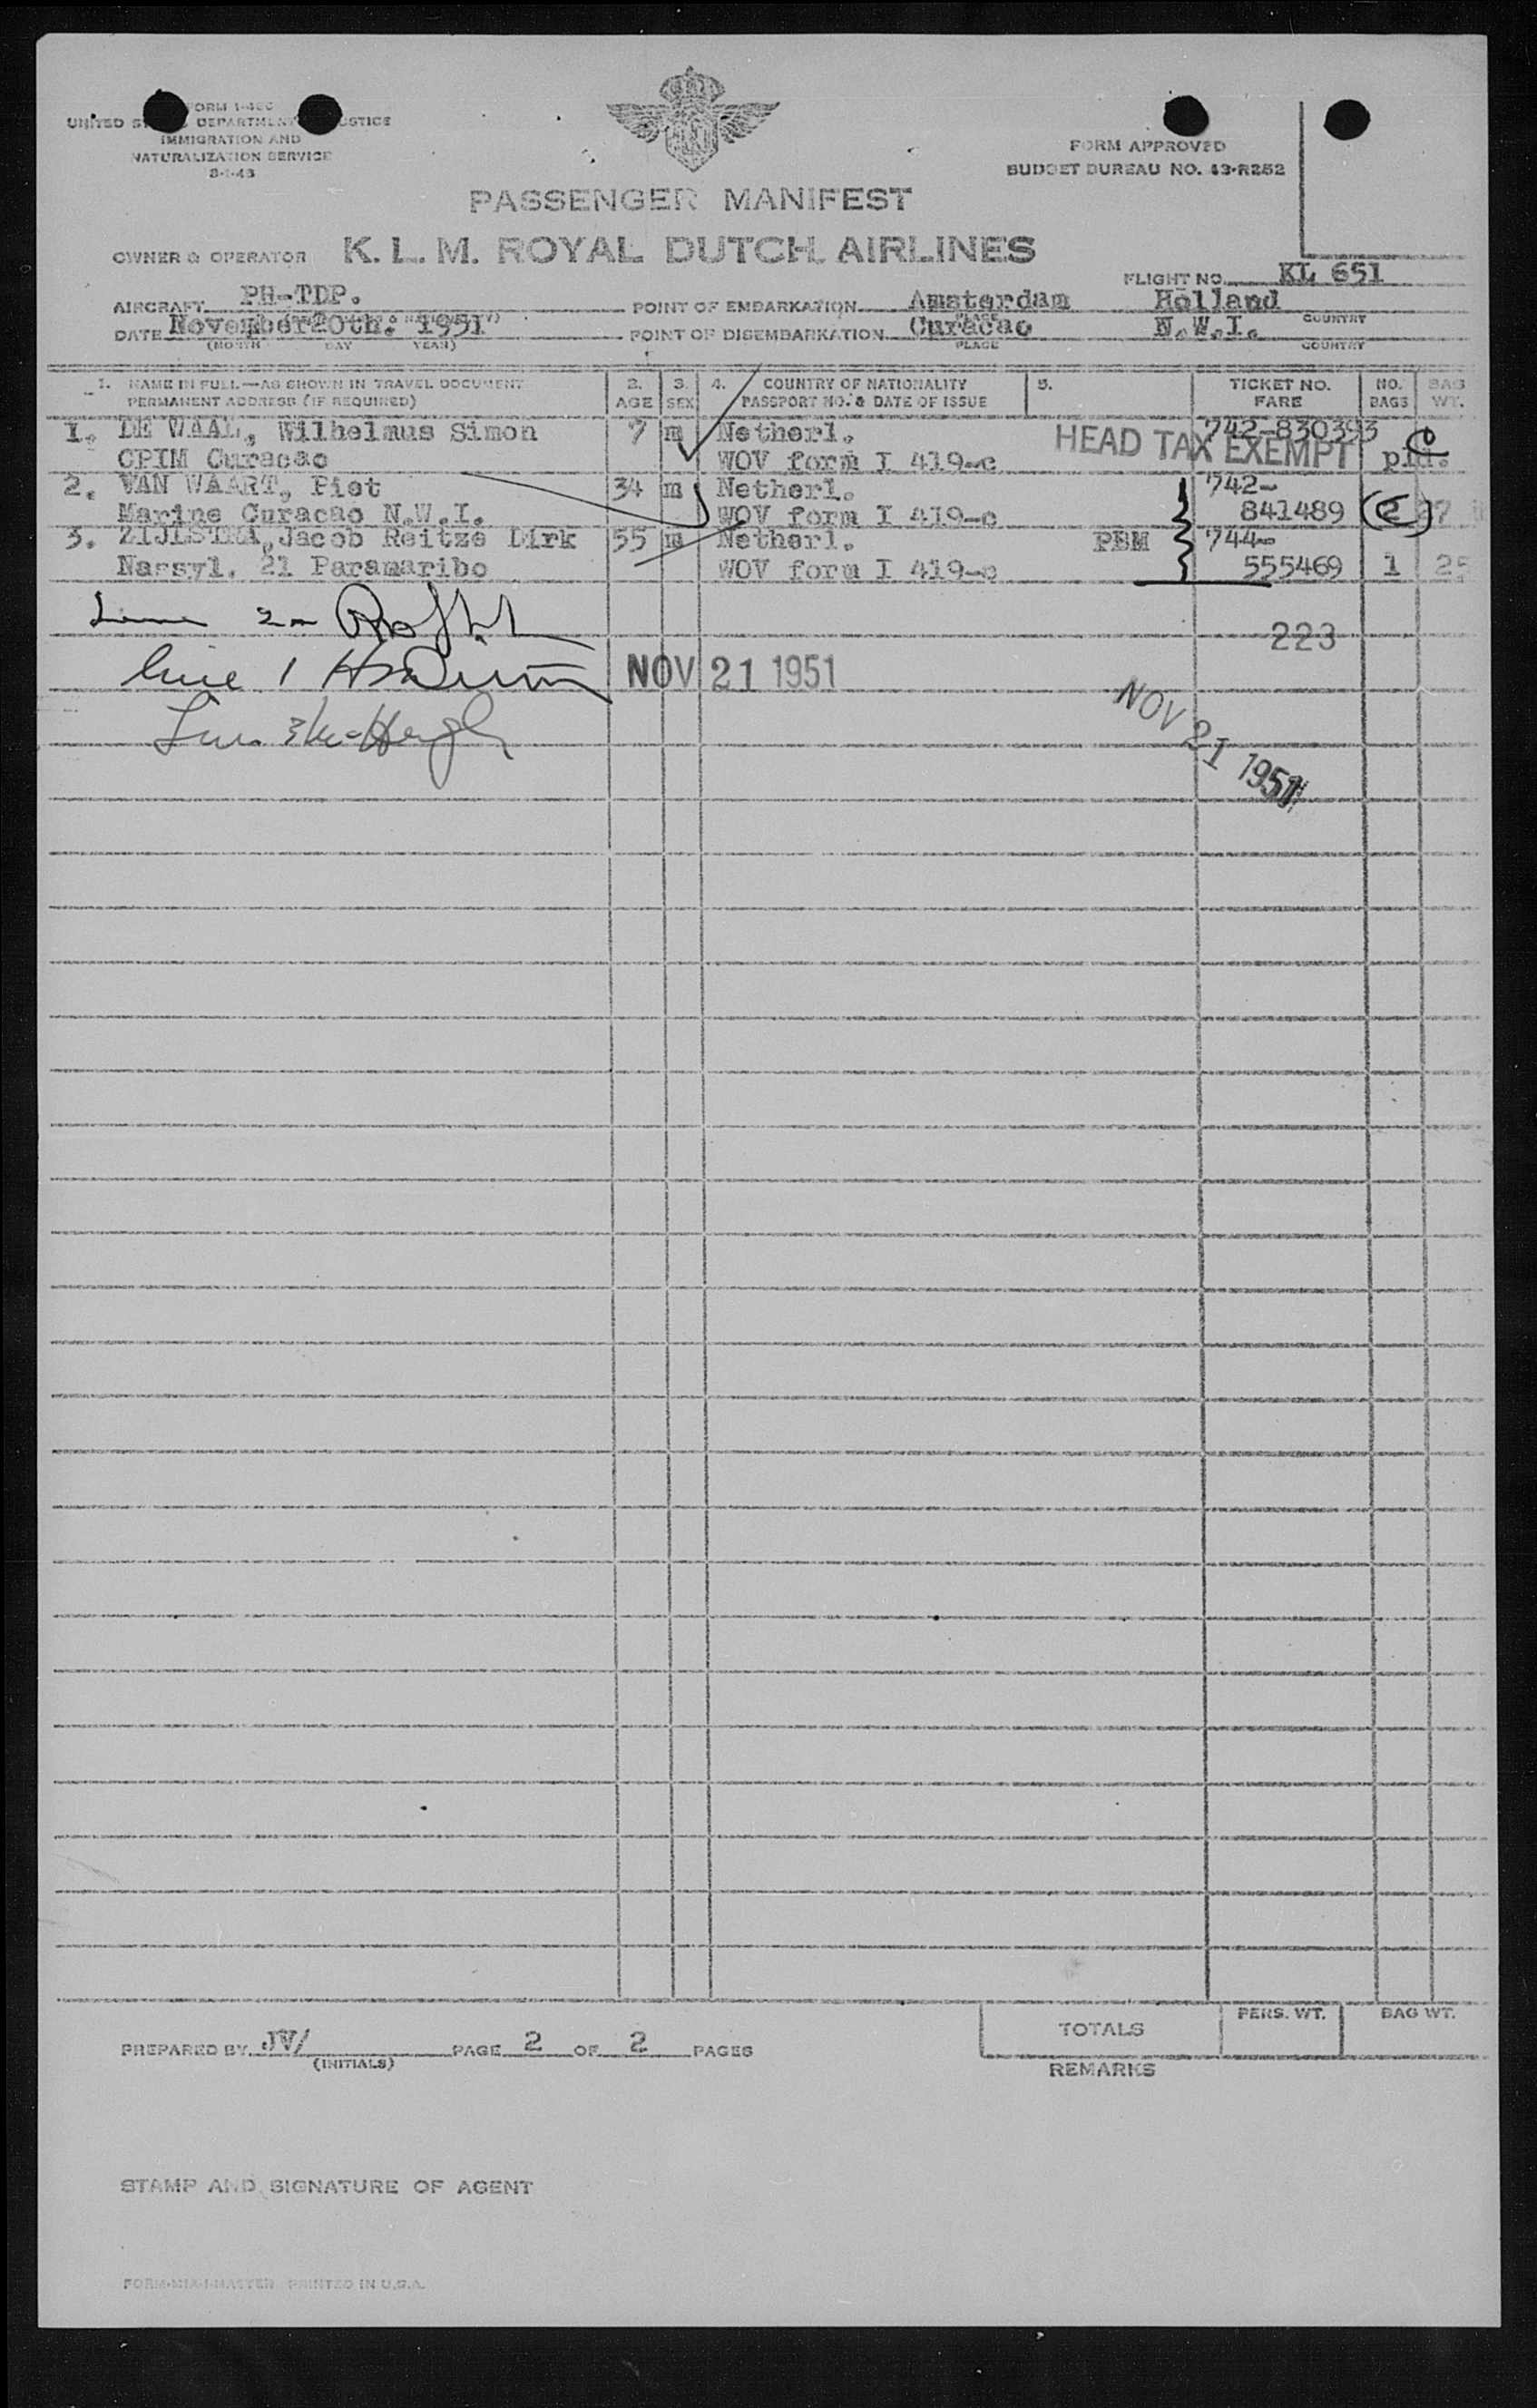 FORM I-466
UNITED STATES DEPARTMENT OF JUSTICE
IMMIGRATION AND
NATURALIZATION SERVICE
FORM APPROVED
BUDGET BUREAU NO. 43-R252
PASSENGER MANIFEST
OWNER & OPERATOR K. L. M. ROYAL DUTCH AIRLINES
FLIGHT NO. KL 651
AIRCRAFT PH-TDP. POINT OF EMBARKATION Amsterdam Holland
PLACE COUNTRY
DATE November 20th: "1951" POINT OF DISEMBARKATION Curacao N.W.I.
(MONTH DAY YEAR) PLACE COUNTRY
1. NAME IN FULL—AS SHOWN IN TRAVEL DOCUMENT 2. 3. 4. COUNTRY OF NATIONALITY 5. TICKET NO. NO. BAG
PERMANENT ADDRESS (IF REQUIRED) AGE SEX PASSPORT NO. & DATE OF ISSUE FARE BAGS WT.
1. DE WAAL, Wilhelmus Simon 7 m Netherl. 742-830393
CPIM Curacao WOV form I 419-c HEAD TAX EXEMPT
2. VAN WAART, Piet 34 m Netherl. 742-
Marine Curacao N.W.I. WOV form I 419-c 841489 2 27
3. ZIJLSTRA, Jacob Reitze Dirk 55 m Netherl. PBM 744-
Nassyl. 21 Paramaribo WOV form I 419-c 555469 1 25
223
line 1
NOV 21 1951
NOV 21 1951
TOTALS PERS. WT. BAG WT.
PREPARED BY JV/ PAGE 2 OF 2 PAGES
(INITIALS)
REMARKS
STAMP AND SIGNATURE OF AGENT
PRINTED IN U.S.A.